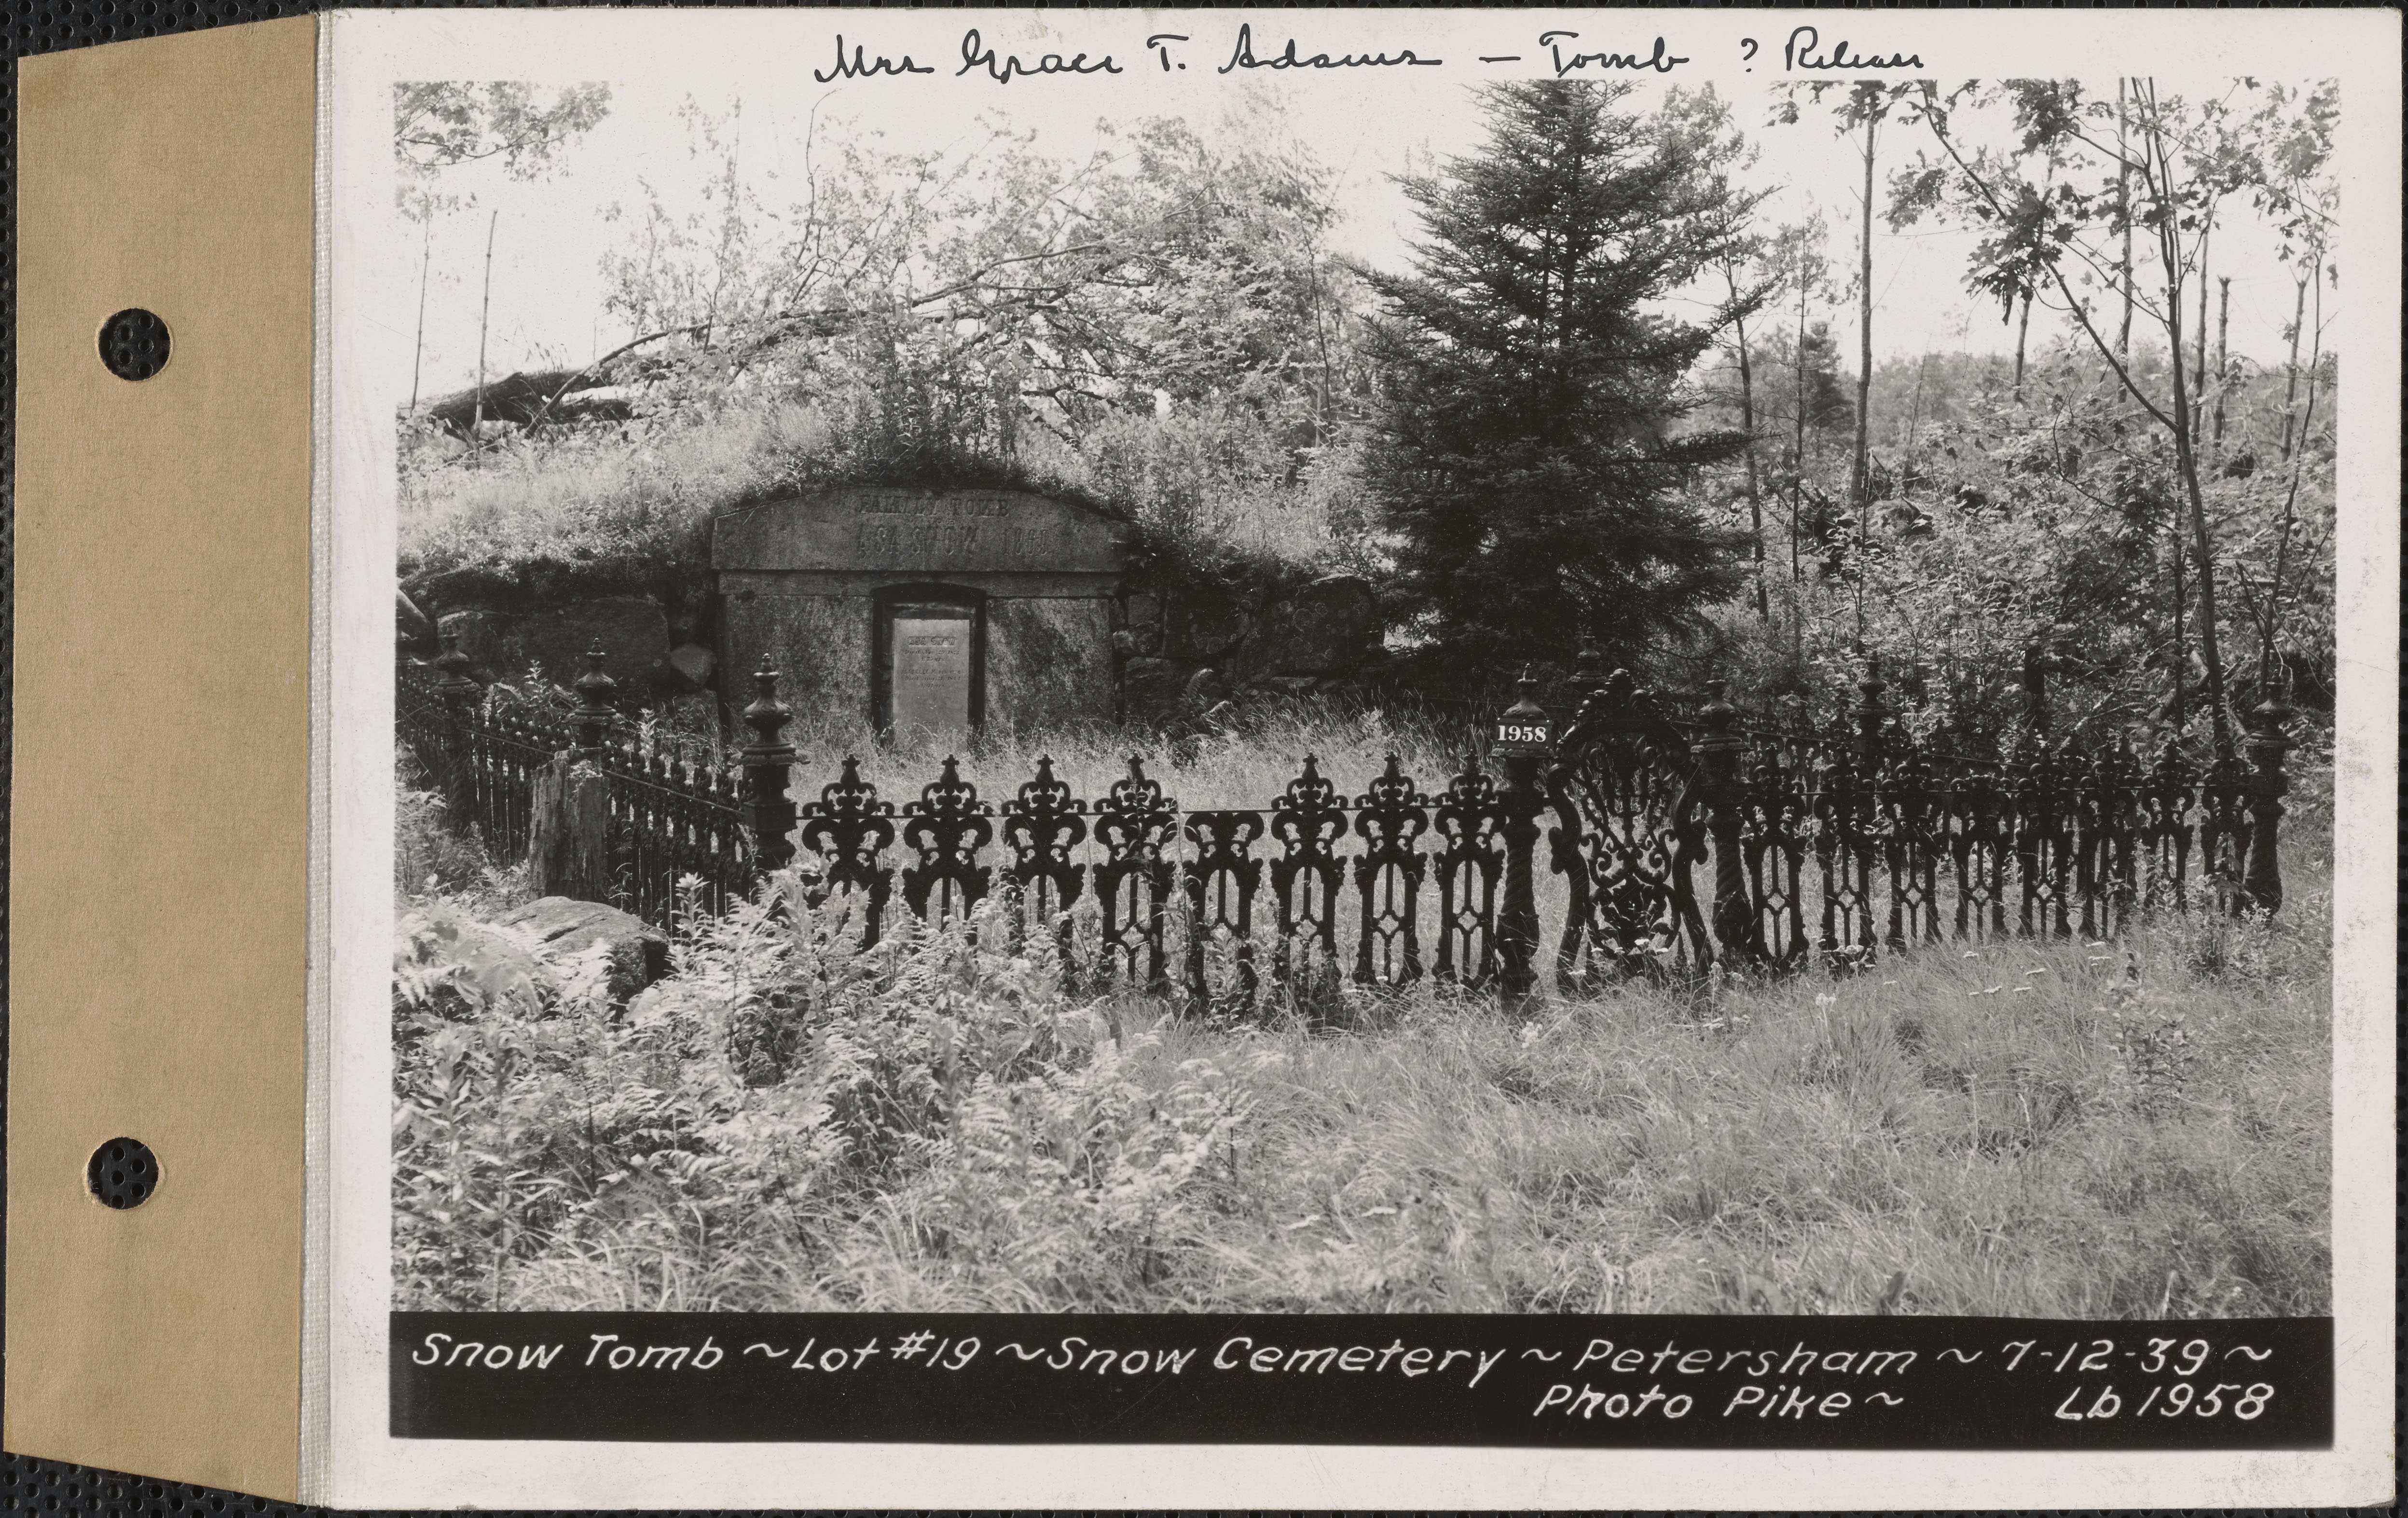 Mrs Grace T. Adams — Tomb ? Release
FAMILY TOMB
ASA SNOW 1860
1958
Snow Tomb ~ Lot #19 ~ Snow Cemetery ~ Petersham ~ 7-12-39 ~
Photo Pike ~ Lb 1958